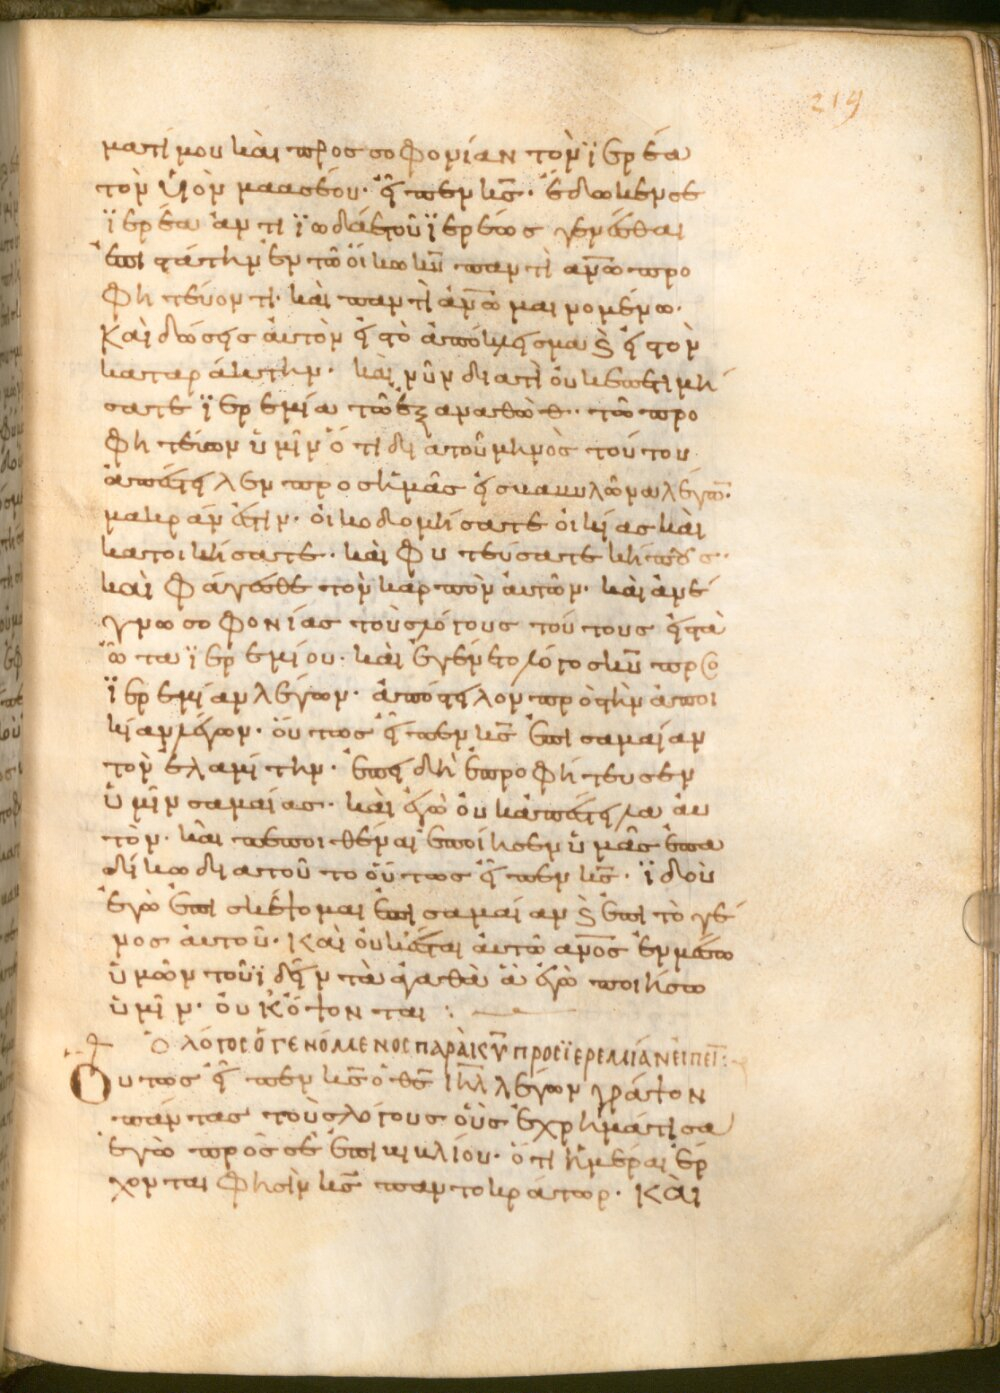 219
ματί μου καὶ πρὸς σοφονίαν τὸν ϊερέα
τὸν υἱὸν μαασέου· εἶπεν κ̅ς̅· ἔδωκέν σε
ϊερέα ἀντὶ ϊωδάε τοῦ ϊερέως γενέσθαι
ἐπιστάτην ἐν τῶ οἴκω κ̅υ̅ παντὶ α̅ν̅ω̅ προ
φητεύοντι· καὶ παντὶ α̅ν̅ω̅ μαινομένω·
καὶ δώσεις αὐτὸν εἰς τὸ ἀπόκλεισμα ϗ εἰς τὸν
καταράκτην· καὶ νῦν διατί οὐκ ἐπετιμή
σατε ϊερεμία τῶ ἐξ αναθώθ· τῶ προ
φητεύων ὑμῖν ὅτι διατοῦ μηνὸς τούτου
ἀπέστειλεν προς ἡμᾶς εἰς βαβυλῶνα λέγω̅·
μακράν ἐστιν· οἰκοδομήσατε οἰκίας καὶ
κατοικήσατε· καὶ φυτεύσατε κήπους·
καὶ φάγεσθε τὸν καρπὸν αὐτῶν· καὶ ἀνέ
γνω σοφονίας τοὺς λόγους τούτους εἰς τὰ
ὦτα ϊερεμίου· καὶ ἐγένετο λόγος κ̅υ̅ προς
ϊερεμίαν λέγων· ἀπόστειλον πρὸς τὴν ἀποι
κίαν λέγων· οὕτως εἶπεν κ̅ς̅ ἐπὶ σαμαίαν
τὸν ἐλαμίτην· ἐπειδὴ ἐπροφήτευσεν
ὑμῖν σαμαίας· καὶ ἐγὼ οὐκ ἀπέστειλα αὐ
τὸν· καὶ πεποιθέναι ἐποίησεν ὑμᾶς ἐπα
δίκω διατοῦτο οὕτως εἶπεν κ̅ς̅· ϊδοὺ
ἐγὼ ἐπισκέψομαι ἐπὶ σαμαίαν ϗ ἐπὶ τὸ γέ
νος αὐτοῦ· καὶ οὐκ ἔσται αὐτῶ α̅ν̅ο̅ς̅ ἐν μέσω
ὑμῶν τοῦ ϊδεῖν τὰ ἀγαθὰ ἃ ἐγὼ ποιήσω
ὑμῖν· οὐκ ὄψονται :
Ὁ λόγος ὁ γενόμενος παρὰ κ̅υ̅ προς ϊερεμίαν εἰπεῖ̅:
Οὕτως εἶπεν κ̅ς̅ ὁ θ̅ς̅ ι̅η̅λ̅ λέγων γράψον
πάντας τοὺς λόγους οὓς ἐχρημάτισα
ἐγὼ πρὸς σὲ ἐπὶ βιβλίου· ὅτι ἡμέραι ἔρ
χονται φησὶν κ̅ς̅ παντοκράτωρ· καὶ